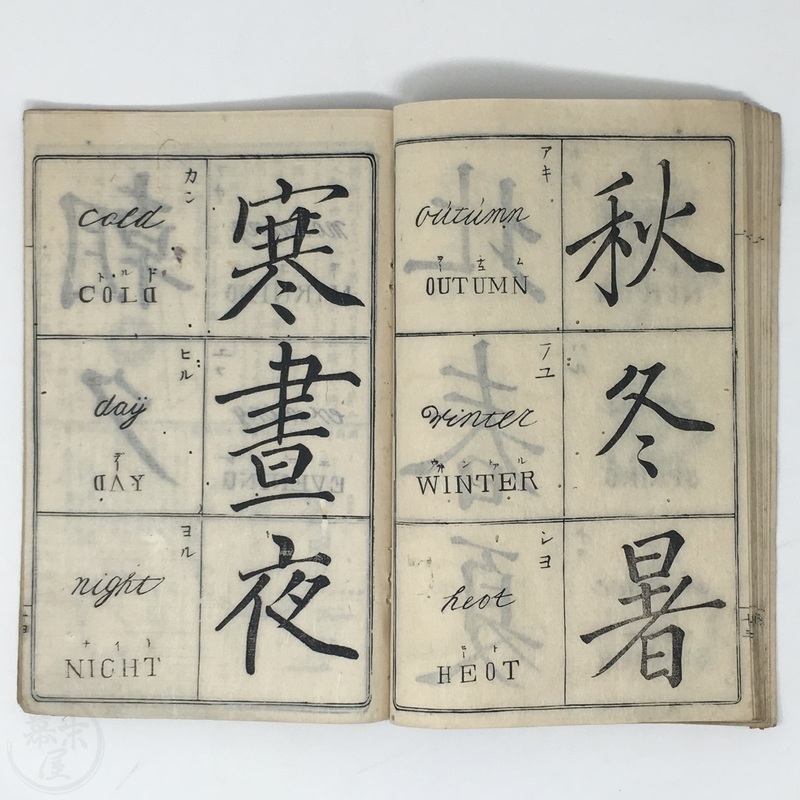 秋
アキ
outumn
ヲー立ム
OUTUMN
冬
フユ
winter
ウヰンテル
WINTER
暑
シヨ
heot
ヒート
HEOT
寒
カン
cold
コールド
COLD
晝
ヒル
day
デー
DAY
夜
ヨル
night
ナイト
NIGHT